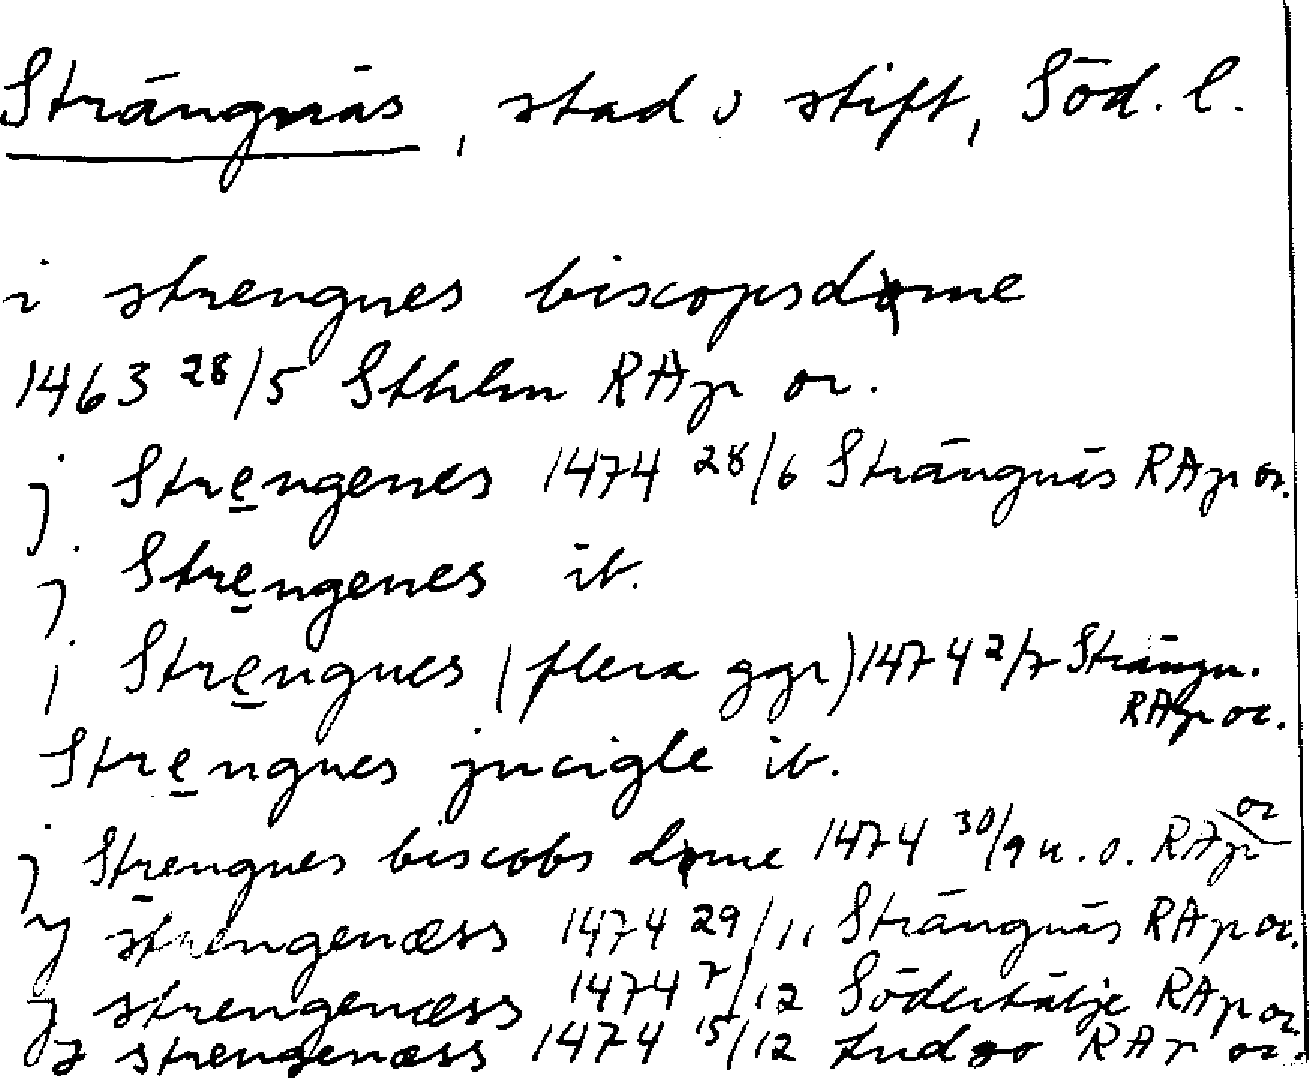 Strängnäs, stad o stift, Söd. l.
i strengnes biscopsdøme
1463 28/5 Sthlm RAp or.
j Strengenes 1474 28/6 Strängnäs RAp or.
j Strengenes ib.
j Strengnes (flera ggr) 1474 2/7 Strängn.
RAp or.
Strengnes incigle ib.
j Strengnes biscobs døme 1474 30/9 u.o. RAp or
y strengenæss 1474 29/11 Strängnäs RAp or.
y strengenæss 1474 7/12 Södertälje RAp or.
y strengenæss 1474 15/12 RAp or.